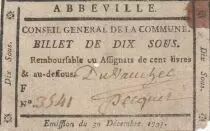 ABBEVILLE.
CONSEIL GENERAL DE LA COMMUNE.
BILLET DE DIX SOUS.
Remboursable en Assignats de cent livres
& au-dessous.
F
N.° 3541
Emission du 30 Décembre. 1791.
Dix Sous.
Dix Sous.